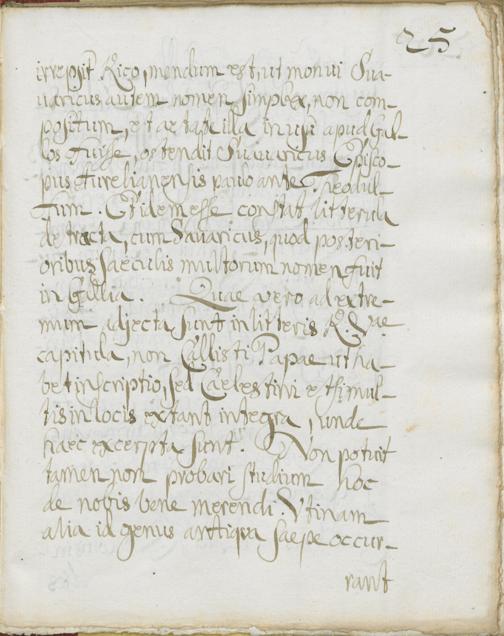 25
irrepsit Rico, mendum est, ut monui Sua-
uaricus autem nomen simplex, non com-
positum, et aetate illa in usu apud Gal-
los fuisse, ostendit Suauaricus Episco-
pus Aurelianensis paulo ante Theodul-
fum. Et idem esse constat, litterula
detracta, cum Sauaricus, quod posteri-
oribus saeculis multorum nomen fuit
in Gallia. Quae vero ad extre-
mum adjecta sunt in litteris R. Vae
capitula, non Callisti Papae ut ha-
bet inscriptio, sed Caelestini et si mul-
tis in locis extant integra, unde
haec excerpta sunt. Non potuit
tamen non probari studium hoc
de nobis bene merendi. Vtinam
alia id genus antiqua saepe occur-
rant